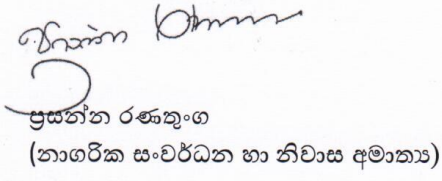 ප්‍රසන්න රණතුංග
(නාගරික සංවර්ධන හා නිවාස අමාත්‍ය)